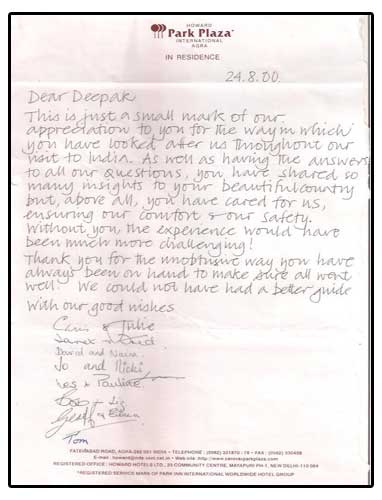 HOWARD
Park Plaza
INTERNATIONAL
AGRA
IN RESIDENCE
24.8.00.
Dear Deepak,
This is just a small mark of our
appreciation to you for the way in which
you have looked after us throughout our
visit to India. As well as having the answers
to all our questions, you have shared so
many insights to your beautiful country
but, above all, you have cared for us,
ensuring our comfort & our safety.
Without you, the experience would have
been much more challenging!
Thank you for the unobtrusive way you have
always been on hand to make sure all went
well. We could not have had a better guide
With our good wishes
Chris & Julie
David and
Jo and Nicki
Les & Pauline
& Liz
Geoff &
Tom
FATEHABAD ROAD, AGRA-282 001 INDIA • TELEPHONE : (0562) 331870 - 78 • FAX : (0562) 330408
REGISTERED OFFICE : HOWARD HOTELS LTD., 20 COMMUNITY CENTRE, MAYAPURI PH-1, NEW DELHI-110 064
*REGISTERED SERVICE MARK OF PARK INN INTERNATIONAL WORLDWIDE HOTEL GROUP